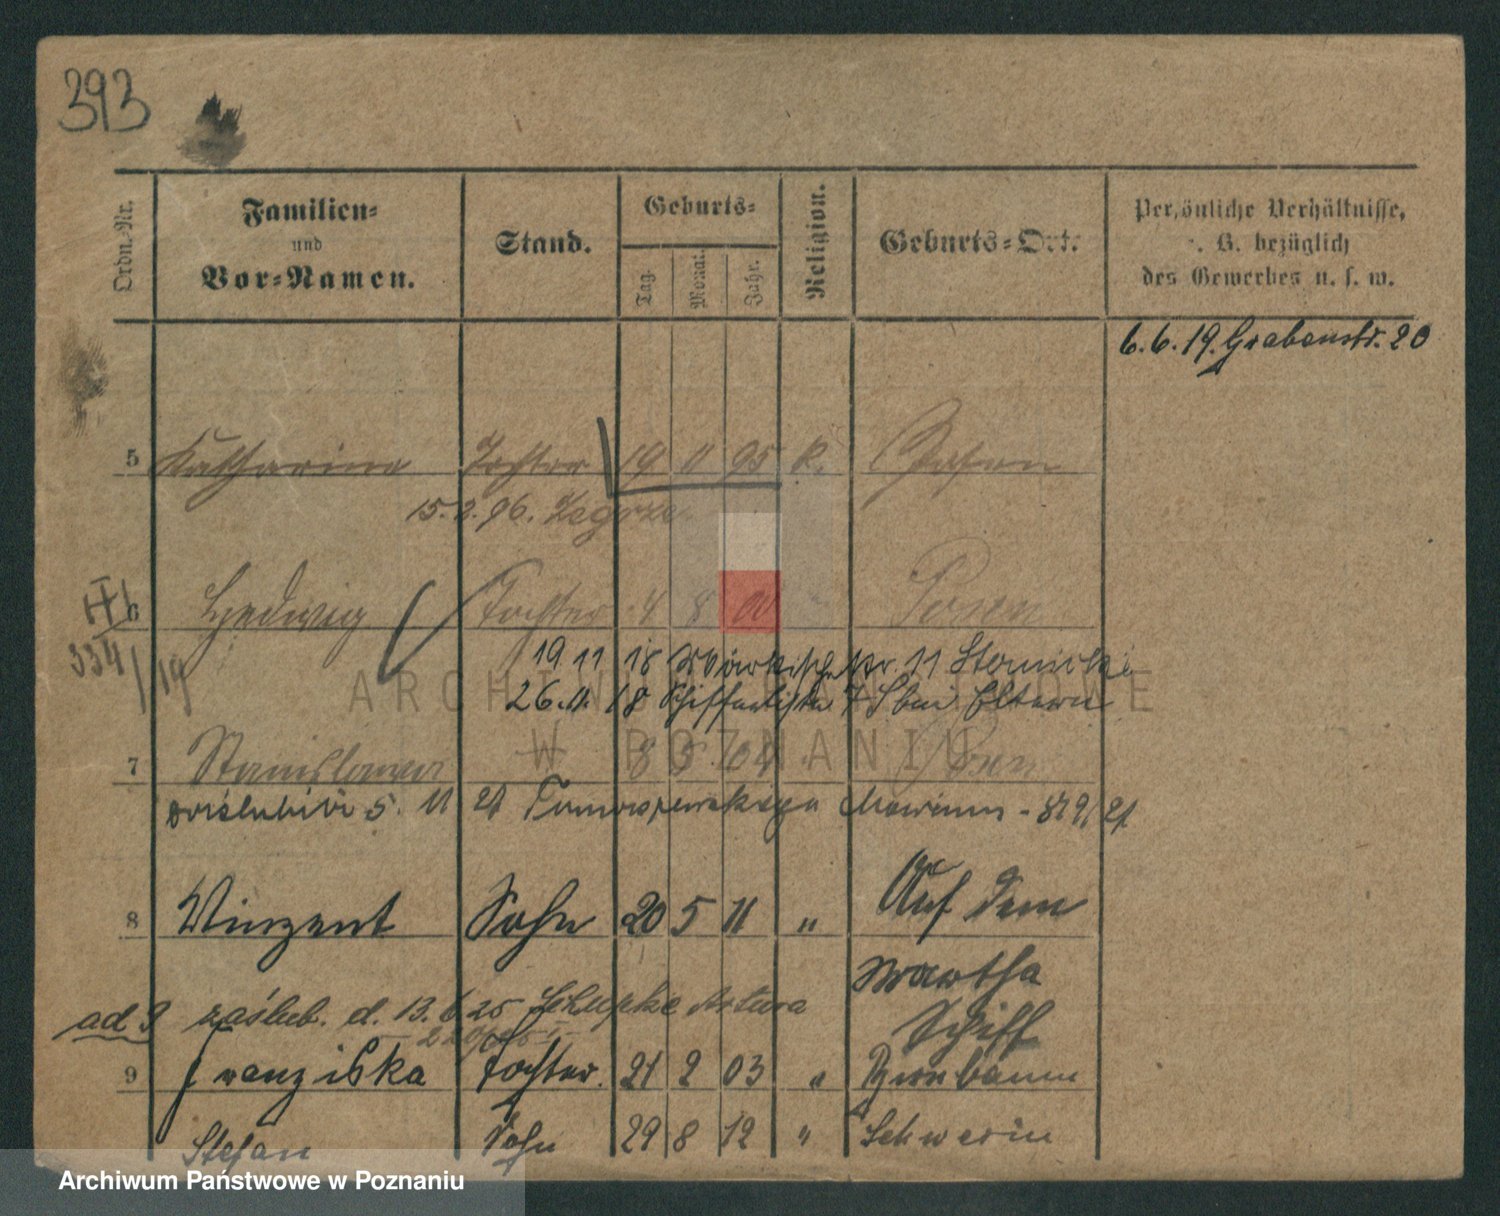 393
Ordn.-Nr.
Familien-
und
Vor-Namen.
Stand.
Geburts-
Tag.
Monat.
Jahr.
Religion.
Geburts-Ort.
Persönliche Verhältnisse,
z. B. bezüglich
des Gewerbes u. s. w.
6.6.19. Grabenstr. 20
5 Katharina Tochter 19 11 95 k. Posen
15.2.96. Zegrze
6 Hedwig Tochter 4 8 00 " Posen
334/19
19 11 18 Märkischestr. 11
26.11.18 bei Eltern
7 Stanislawa 8 5 Posen
5. 11 21
8 Winzent Sohn 20 5 11 " Auf dem
Wartha
Schiff
ad 9 zaślub. d. 13.6.25 Artura
9 Franziska Tochter. 21 2 03 " Birnbaum
Stefan Sohn 29 8 12 " Schwerin
ARCHIWUM PAŃSTWOWE
W POZNANIU
Archiwum Państwowe w Poznaniu